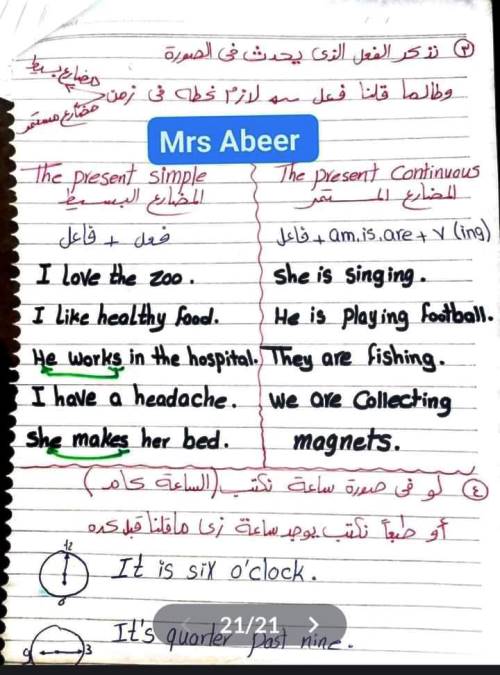 ٣ نذكر الفعل الذى يحدث فى الصورة
مضارع بسيط
وطالما قلنا فعل يبقى لازم نحطه فى زمن
مضارع مستمر
Mrs Abeer
The present simple
المضارع البسيط
فاعل + فعل
I love the zoo.
I like healthy food.
He works in the hospital.
I have a headache.
She makes her bed.
The present Continuous
المضارع المستمر
فاعل + am, is, are + v (ing)
she is singing.
He is playing football.
They are fishing.
we are collecting
magnets.
٤ لو فى صورة ساعة نكتب (الساعة كام)
أو طبعاً نكتب يوجد ساعة زى ماقلنا قبل كده
12
6
It is six o'clock.
21/21
9 3
It's quarter past nine.